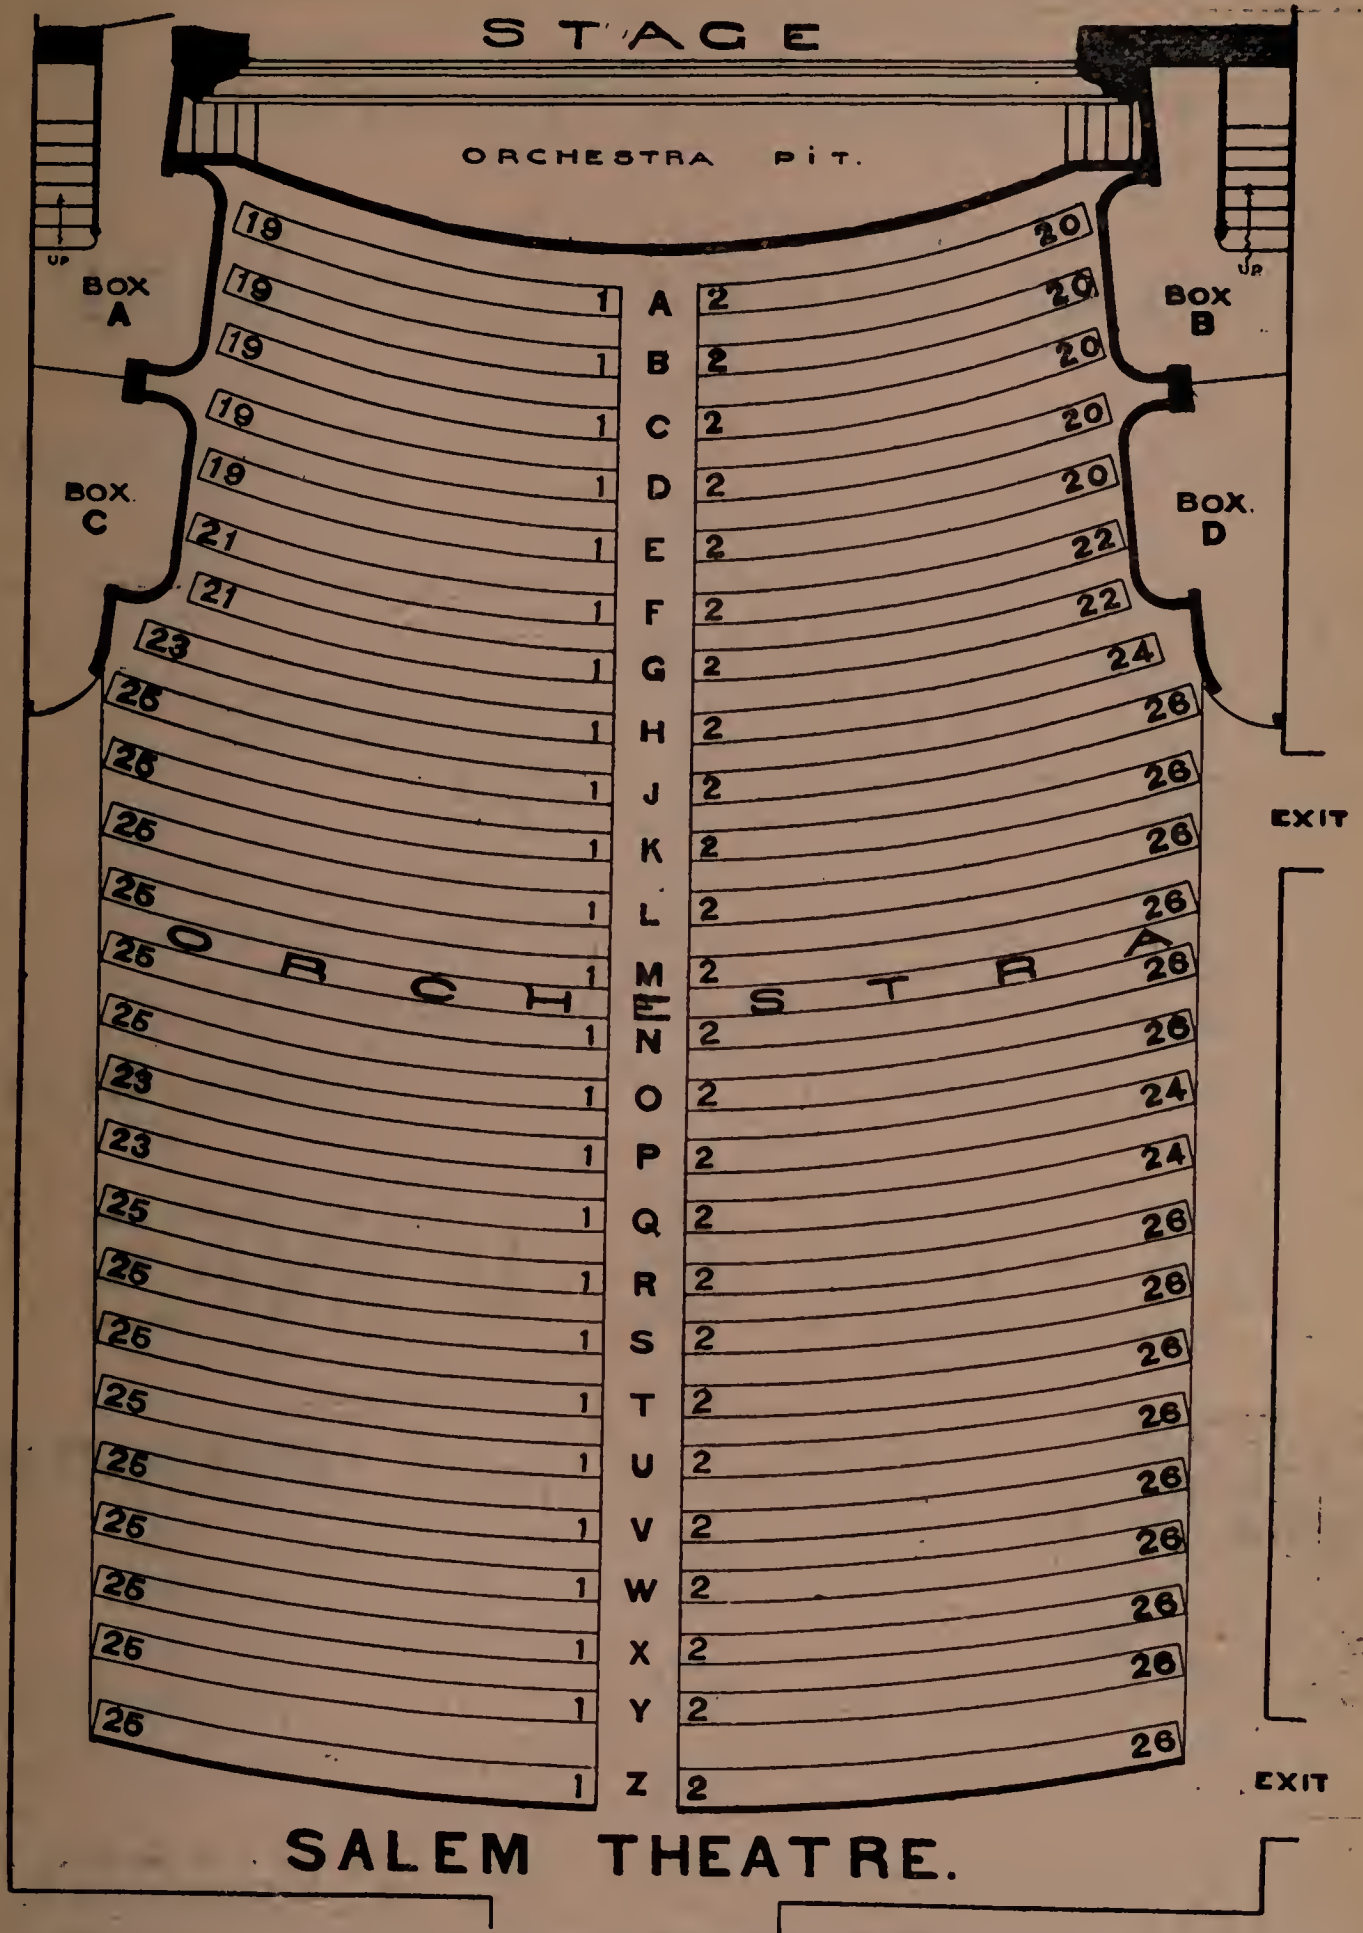 STAGE
ORCHESTRA PiT.
UP
UP
BOX
A
BOX
B
BOX.
C
BOX.
D
19 1 A 2 20
19 1 B 2 20
19 1 C 2 20
19 1 D 2 20
19 1 E 2 20
21 1 F 2 22
21 1 G 2 22
23 1 H 2 24
25 1 J 2 26
25 1 K 2 26
EXIT
25 1 L 2 26
25 1 M 2 26
ORCHESTRA
25 1 N 2 26
25 1 O 2 26
23 1 P 2 24
23 1 Q 2 24
25 1 R 2 26
25 1 S 2 26
25 1 T 2 26
25 1 U 2 26
25 1 V 2 26
25 1 W 2 26
25 1 X 2 26
25 1 Y 2 26
25 1 Z 2 26
EXIT
SALEM THEATRE.